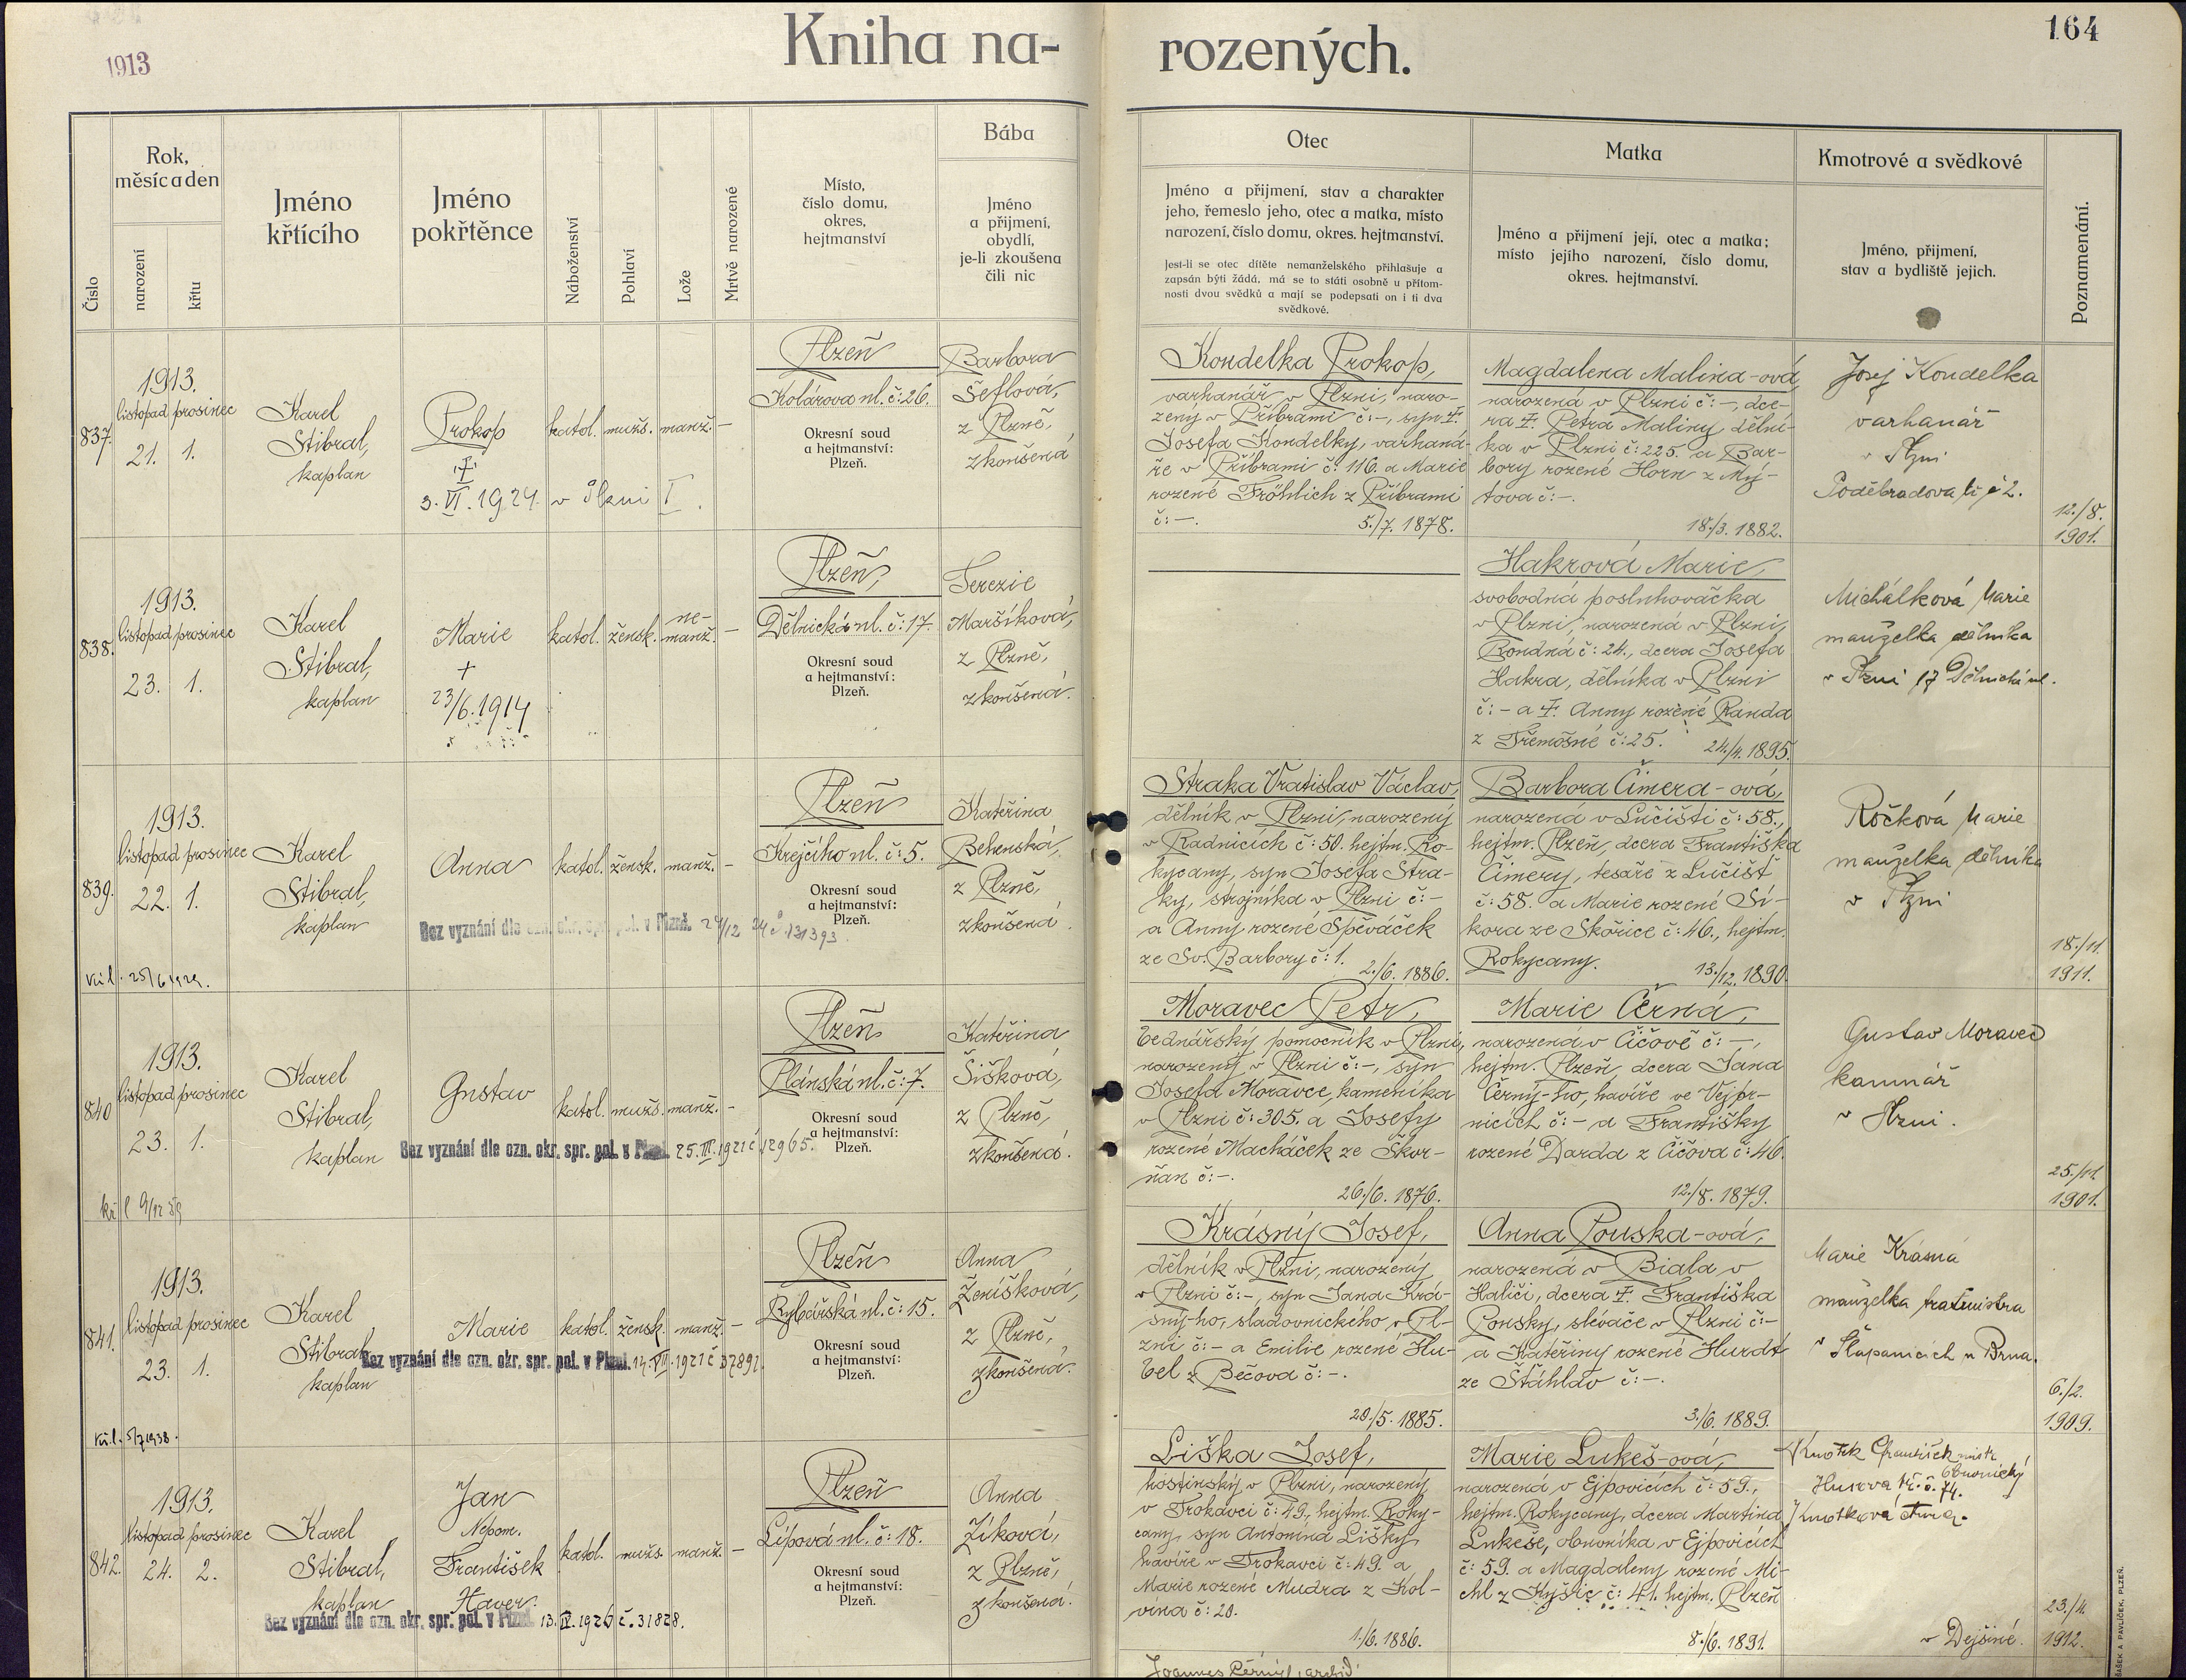 1913
Kniha na-
rozených.
164
Číslo
Rok,
měsíc a den
narození
křtu
Jméno
křtícího
Jméno
pokřtěnce
Náboženství
Pohlaví
Lože
Mrtvě narozené
Místo,
číslo domu,
okres,
hejtmanství
Bába
Jméno
a přijmení,
obydlí,
je-li zkoušena
čili nic
Otec
Jméno a přijmení, stav a charakter
jeho, řemeslo jeho, otec a matka, místo
narození, číslo domu, okres. hejtmanství.
Jest-li se otec dítěte nemanželského přihlašuje a
zapsán býti žádá, má se to státi osobně u přítom-
nosti dvou svědků a mají se podepsati on i ti dva
svědkové.
Matka
Jméno a přijmení její, otec a matka;
místo jejího narození, číslo domu,
okres. hejtmanství.
Kmotrové a svědkové
Jméno, přijmení,
stav a bydliště jejich.
Poznamenání.
837.
1913.
listopad prosinec
21. 1.
Karel
Stibral,
kaplan
Prokop
†
3. VI. 1924. v Plzni I.
katol. mužs. manž. –
Plzeň
Kolárova ul. č: 26.
Okresní soud
a hejtmanství:
Plzeň.
Barbora
Šeflová,
z Plzně,
zkoušená
Koudelka Prokop,
varhanář v Plzni, naro-
zený v Příbrami č: –, syn †
Josefa Koudelky, varhaná-
ře v Příbrami č: 116. a Marie
rozené Fröhlich z Příbrami
č: –.
5./7. 1878.
Magdalena Malina-ová,
narozená v Plzni č: –, dce-
ra † Petra Maliny, dělní-
ka v Plzni č: 225. a Bar-
bory rozené Horn z Mý-
tova č: –.
18./3. 1882.
Josef Koudelka
varhanář
v Plzni
Poděbradova tř. č 2.
12./8.
1901.
838.
1913.
listopad prosinec
23. 1.
Karel
Stibral,
kaplan
Marie
+
23/6. 1914
katol. žensk. ne-
manž. –
Plzeň,
Dělnická ul. č: 17.
Okresní soud
a hejtmanství:
Plzeň.
Terezie
Maršíková,
z Plzně,
zkoušená.
Hakrová Marie,
svobodná posluhovačka
v Plzni, narozená v Plzni,
Rondná č: 24., dcera Josefa
Hakra, dělníka v Plzni
č: – a † Anny rozené Randa
z Třemošné č: 25.
24./4. 1895.
Michálková Marie
manželka dělníka
v Plzni 17 Dělnická ul.
839.
1913.
listopad prosinec
22. 1.
Karel
Stibral,
kaplan
Anna
katol. žensk. manž. –
Bez vyznání dle ozn. okr. spr. pol. v Plzni. 24/12 24 č 131393.
Plzeň
Krejčího ul. č: 5.
Okresní soud
a hejtmanství:
Plzeň.
Kateřina
Behenská,
z Plzně,
zkoušená.
Straka Vratislav Václav,
dělník v Plzni, narozený
v Radnicích č: 50. hejtm. Ro-
kycany, syn Josefa Stra-
ky, strojníka v Plzni č: –
a Anny rozené Spěváček
ze Sv. Barbory č: 1.
2./6. 1886.
Barbora Čimera-ová,
narozená v Lučišti č: 58.,
hejtm. Plzeň, dcera Františka
Čimery, tesaře z Lučišť
č: 58. a Marie rozené Sí-
kora ze Skořice č: 46., hejtm.
Rokycany.
13./12. 1890.
Ročková Marie
manželka dělníka
v Plzni
18./11.
1911.
840
1913.
listopad prosinec
23. 1.
Karel
Stibral,
kaplan
Gustav
katol. mužs. manž. –
Bez vyznání dle ozn. okr. spr. pol. v Plzni. 25. III. 1921 č 12965.
Plzeň
Plánská ul. č: 7.
Okresní soud
a hejtmanství:
Plzeň.
Kateřina
Šišková,
z Plzně,
zkoušená.
Moravec Petr,
bednářský pomocník v Plzni,
narozený v Plzni č: –, syn
Josefa Moravce, kameníka
v Plzni č: 305. a Josefy
rozené Macháček ze Skvr-
ňan č: –.
26./6. 1876.
Marie Černá,
narozená v Čičově č: –,
hejtm. Plzeň, dcera Jana
Černý-ho, havíře ve Vejpr-
nicích č: – a Františky
rozené Darda z Čičova č: 46.
12./8. 1879.
Gustav Moravec
kamnář
v Plzni.
25./11.
1901.
841.
1913.
listopad prosinec
23. 1.
Karel
Stibral,
kaplan
Marie
katol. žensk. manž. –
Bez vyznání dle ozn. okr. spr. pol. v Plzni. 14. VII. 1921 č 37891.
Plzeň
Rybářská ul. č: 15.
Okresní soud
a hejtmanství:
Plzeň.
Anna
Ženíšková,
z Plzně,
zkoušená.
Krásný Josef,
dělník v Plzni, narozený
v Plzni č: –, syn Jana Krá-
sný-ho, sladovnického, v Pl-
zni č: – a Emilie rozené Hu-
bel z Bečova č: –.
20./5. 1885.
Anna Pouska-ová,
narozená v Biala v
Haliči, dcera † Františka
Pousky, slévače v Plzni č: –
a Kateřiny rozené Hurdt
ze Šťáhlav č: –.
3./6. 1889.
Marie Krásná
manželka
v Šlapanicích u Brna.
6./2.
1909.
842.
1913.
listopad prosinec
24. 2.
Karel
Stibral,
kaplan
Jan
Nepom.
František
Xaver.
katol. mužs. manž. –
Bez vyznání dle ozn. okr. spr. pol. v Plzni 13. IV. 1926 č. 31828.
Plzeň
Lípová ul. č: 18.
Okresní soud
a hejtmanství:
Plzeň.
Anna
Zíková,
z Plzně,
zkoušená.
Liška Josef,
hostinský v Plzni, narozený
v Trokavci č: 49., hejtm. Roky-
cany, syn Antonína Lišky,
havíře v Trokavci č: 49. a
Marie rozené Mudra z Kol-
vína č: 20.
1./6. 1886.
Marie Lukeš-ová,
narozená v Ejpovicích č: 59.,
hejtm. Rokycany, dcera Martina
Lukeše, obuvníka v Ejpovicích
č: 59. a Magdaleny rozené Mi-
chl z Kyšic č: 41. hejtm. Plzeň
8./6. 1891.
Kmotek František mistr
obuvnický
Husova tř. č. 74.
Kmotková Anna.
v Dejšině.
23./4.
1912.
ŠAŠEK A PAVLÍČEK, PLZEŇ.